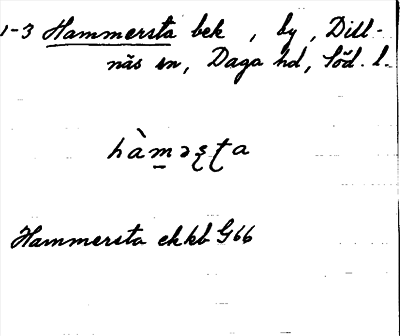 1-3 Hammersta bek , by , Dill-
näs sn, Daga hd, Söd. l.
hàm̲əʂʈa
Hammersta ekkb G66